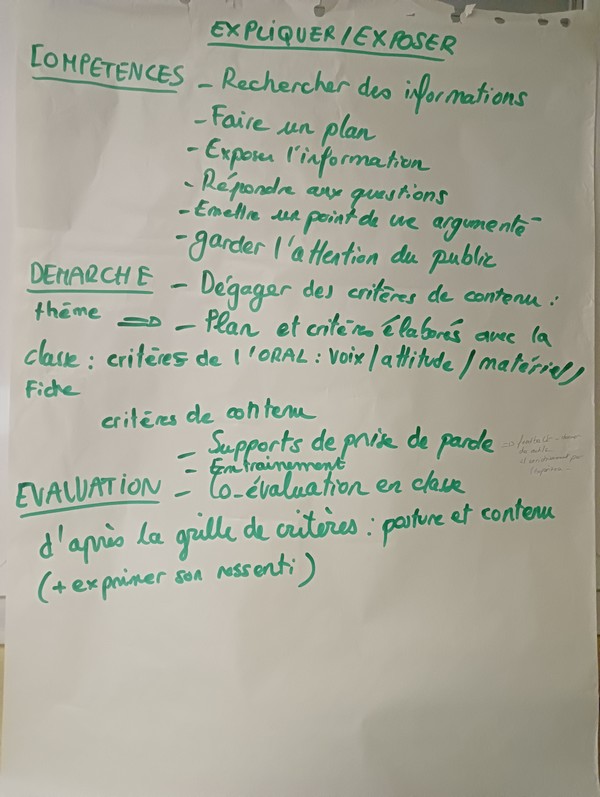 EXPLIQUER / EXPOSER
COMPETENCES - Rechercher des informations
- Faire un plan
- Exposer l'information
- Répondre aux questions
- Emettre un point de vue argumenté
- garder l'attention du public
DEMARCHE - Dégager des critères de contenu :
thème ⇒ - Plan et critères élaborés avec la
classe : critères de l'ORAL : voix / attitude / matériel /
Fiche
critères de contenu
- Supports de prise de parole
- Entrainement
EVALUATION - Co-évaluation en classe
d'après la grille de critères : posture et contenu
(+ exprimer son ressenti)